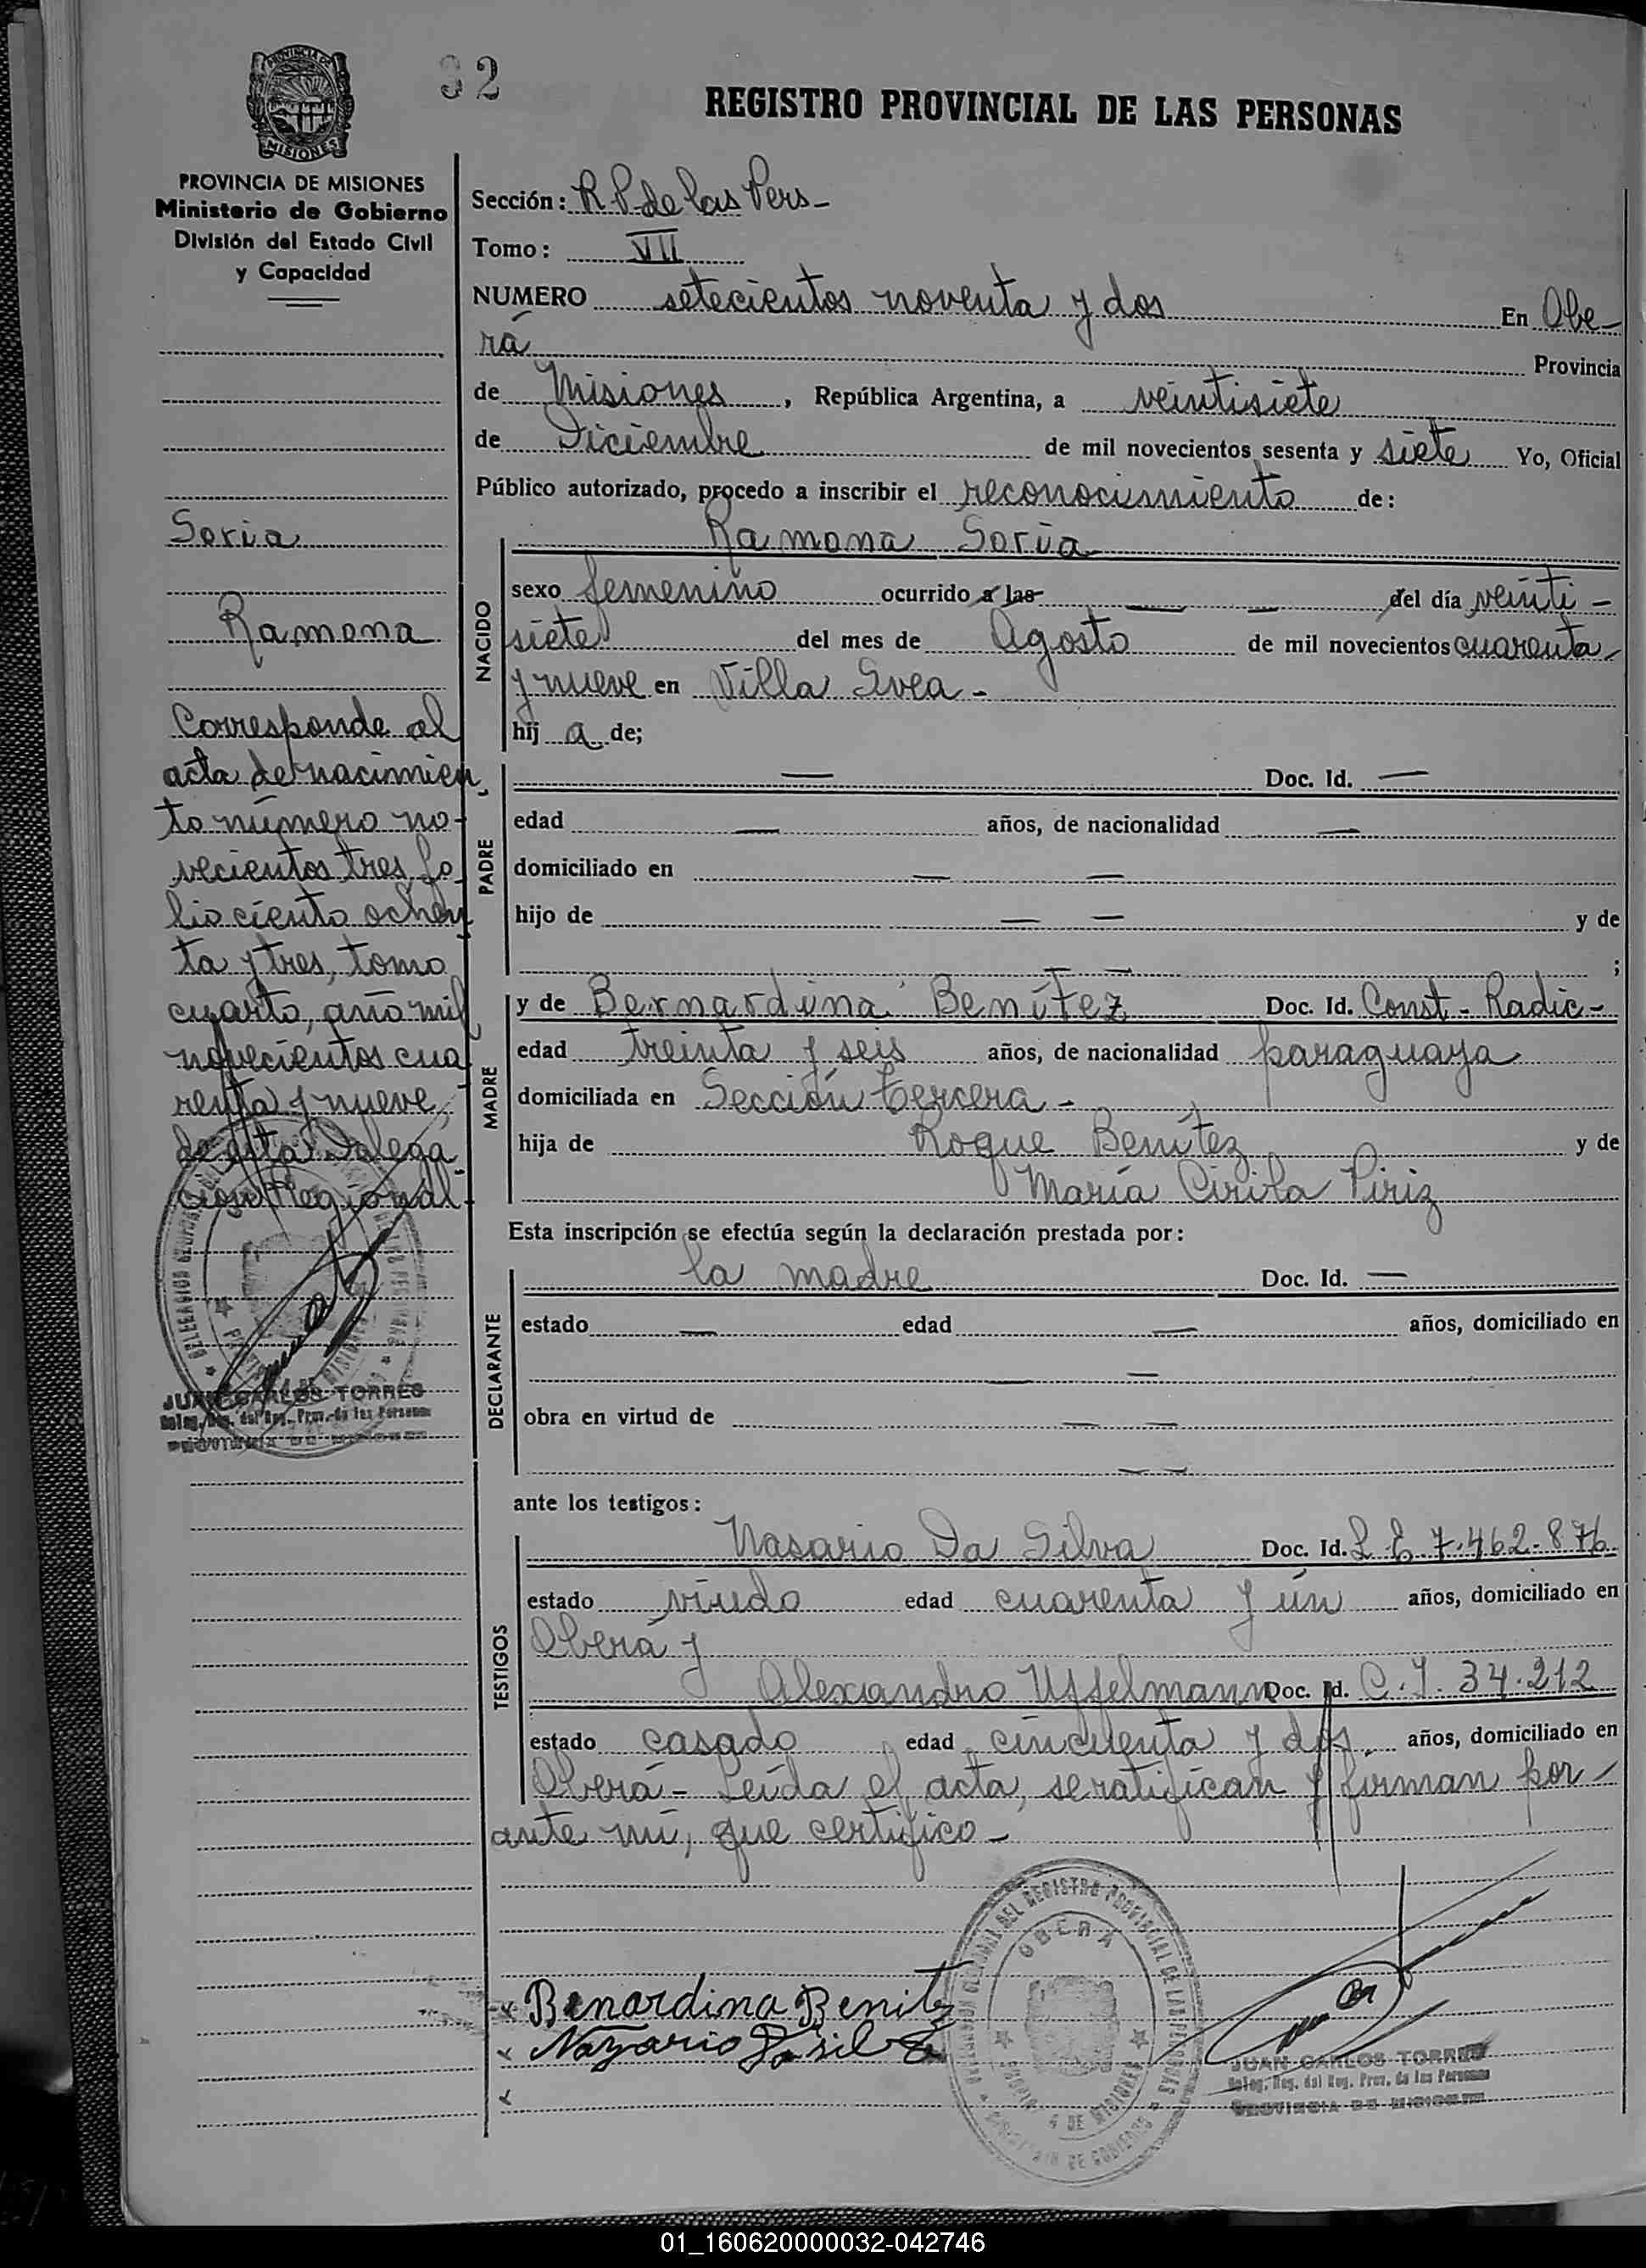 32
REGISTRO PROVINCIAL DE LAS PERSONAS
MISIONES
PROVINCIA DE MISIONES
Ministerio de Gobierno
División del Estado Civil
y Capacidad
Soria
Ramona
Corresponde al
acta de nacimien
to número no-
vecientos tres fo
lio ciento ochen
ta y tres, tomo
cuarto, año mil
novecientos cua
renta y nueve,
de esta Delega
ción Regional-
JUAN CARLOS TORRES
Deleg. Reg. del Reg. Prov. de las Personas
PROVINCIA DE MISIONES
Sección: R P de las Pers-
Tomo: VII
NUMERO setecientos noventa y dos En Obe-
rá Provincia
de Misiones, República Argentina, a veintisiete
de Diciembre de mil novecientos sesenta y siete Yo, Oficial
Público autorizado, procedo a inscribir el reconocimiento de:
Ramona Soria
NACIDO
sexo femenino ocurrido a las — — del día veinti-
siete del mes de Agosto de mil novecientos cuarenta
y nueve en Villa Svea-
hij a de;
PADRE
— Doc. Id. —
edad — años, de nacionalidad —
domiciliado en — —
hijo de — — y de
— — ;
MADRE
y de Bernardina Benítez Doc. Id. Const- Radic-
edad treinta y seis años, de nacionalidad paraguaya
domiciliada en Sección tercera-
hija de Roque Benítez y de
María Cirila Piriz
Esta inscripción se efectúa según la declaración prestada por:
DECLARANTE
la madre Doc. Id. —
estado — edad — años, domiciliado en
— —
obra en virtud de — —
— —
ante los testigos:
TESTIGOS
Nasario Da Silva Doc. Id. L E 7.462.876
estado viudo edad cuarenta y ún años, domiciliado en
Oberá y
Alexandro Uffelmann Doc. Id. C.I. 34.212
estado casado edad cincuenta y dos, años, domiciliado en
Oberá- Leída el acta, se ratifican y firman por
ante mí, que certifico-
x Benardina Benitz
x Nazario Da silva
x
OBERA
JUAN CARLOS TORRES
Deleg. Reg. del Reg. Prov. de las Personas
PROVINCIA DE MISIONES
01_160620000032-042746